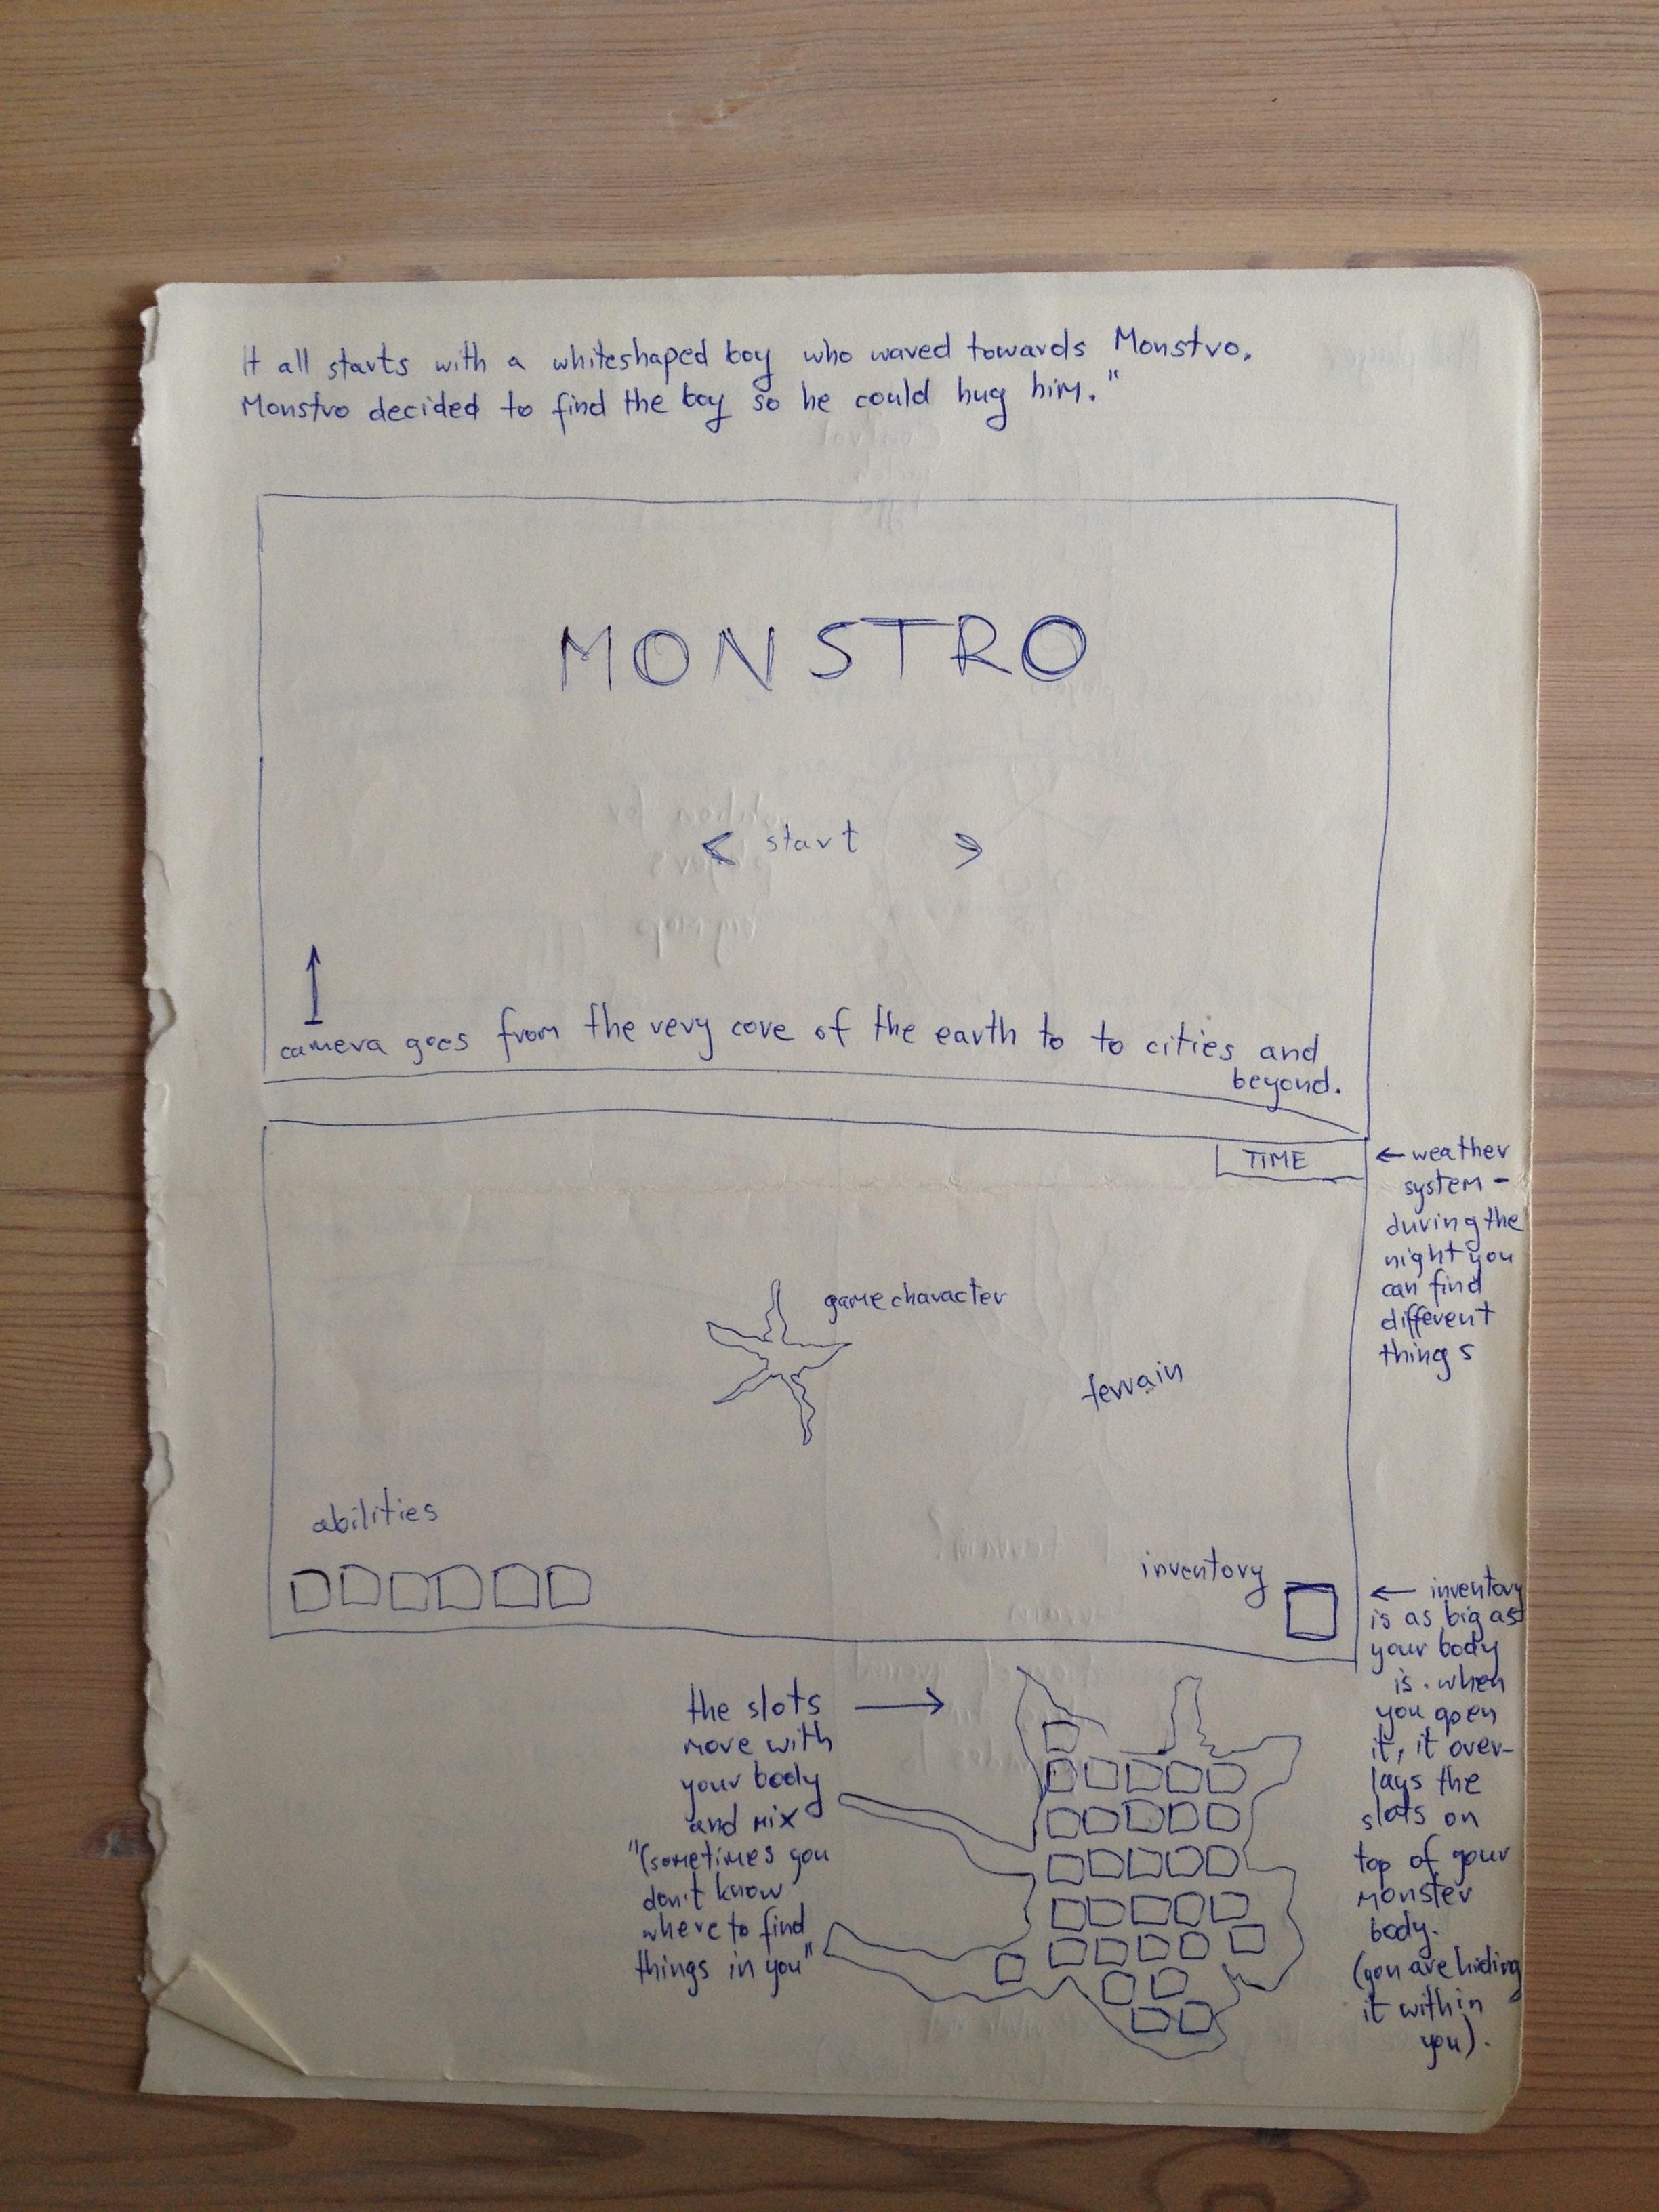 It all starts with a whiteshaped boy who waved towards Monstro.
Monstro decided to find the boy so he could hug him."
MONSTRO
< start >
camera goes from the very core of the earth to to cities and
beyond.
TIME
← weather
system -
during the
night you
can find
different
things
gamecharacter
terrain
abilities
inventory
← inventory
is as big as
your body
is. when
you open
it, it over-
lays the
slots on
top of your
monster
body.
(you are hiding
it within
you).
the slots →
move with
your body
and mix
"(sometimes you
don't know
where to find
things in you"